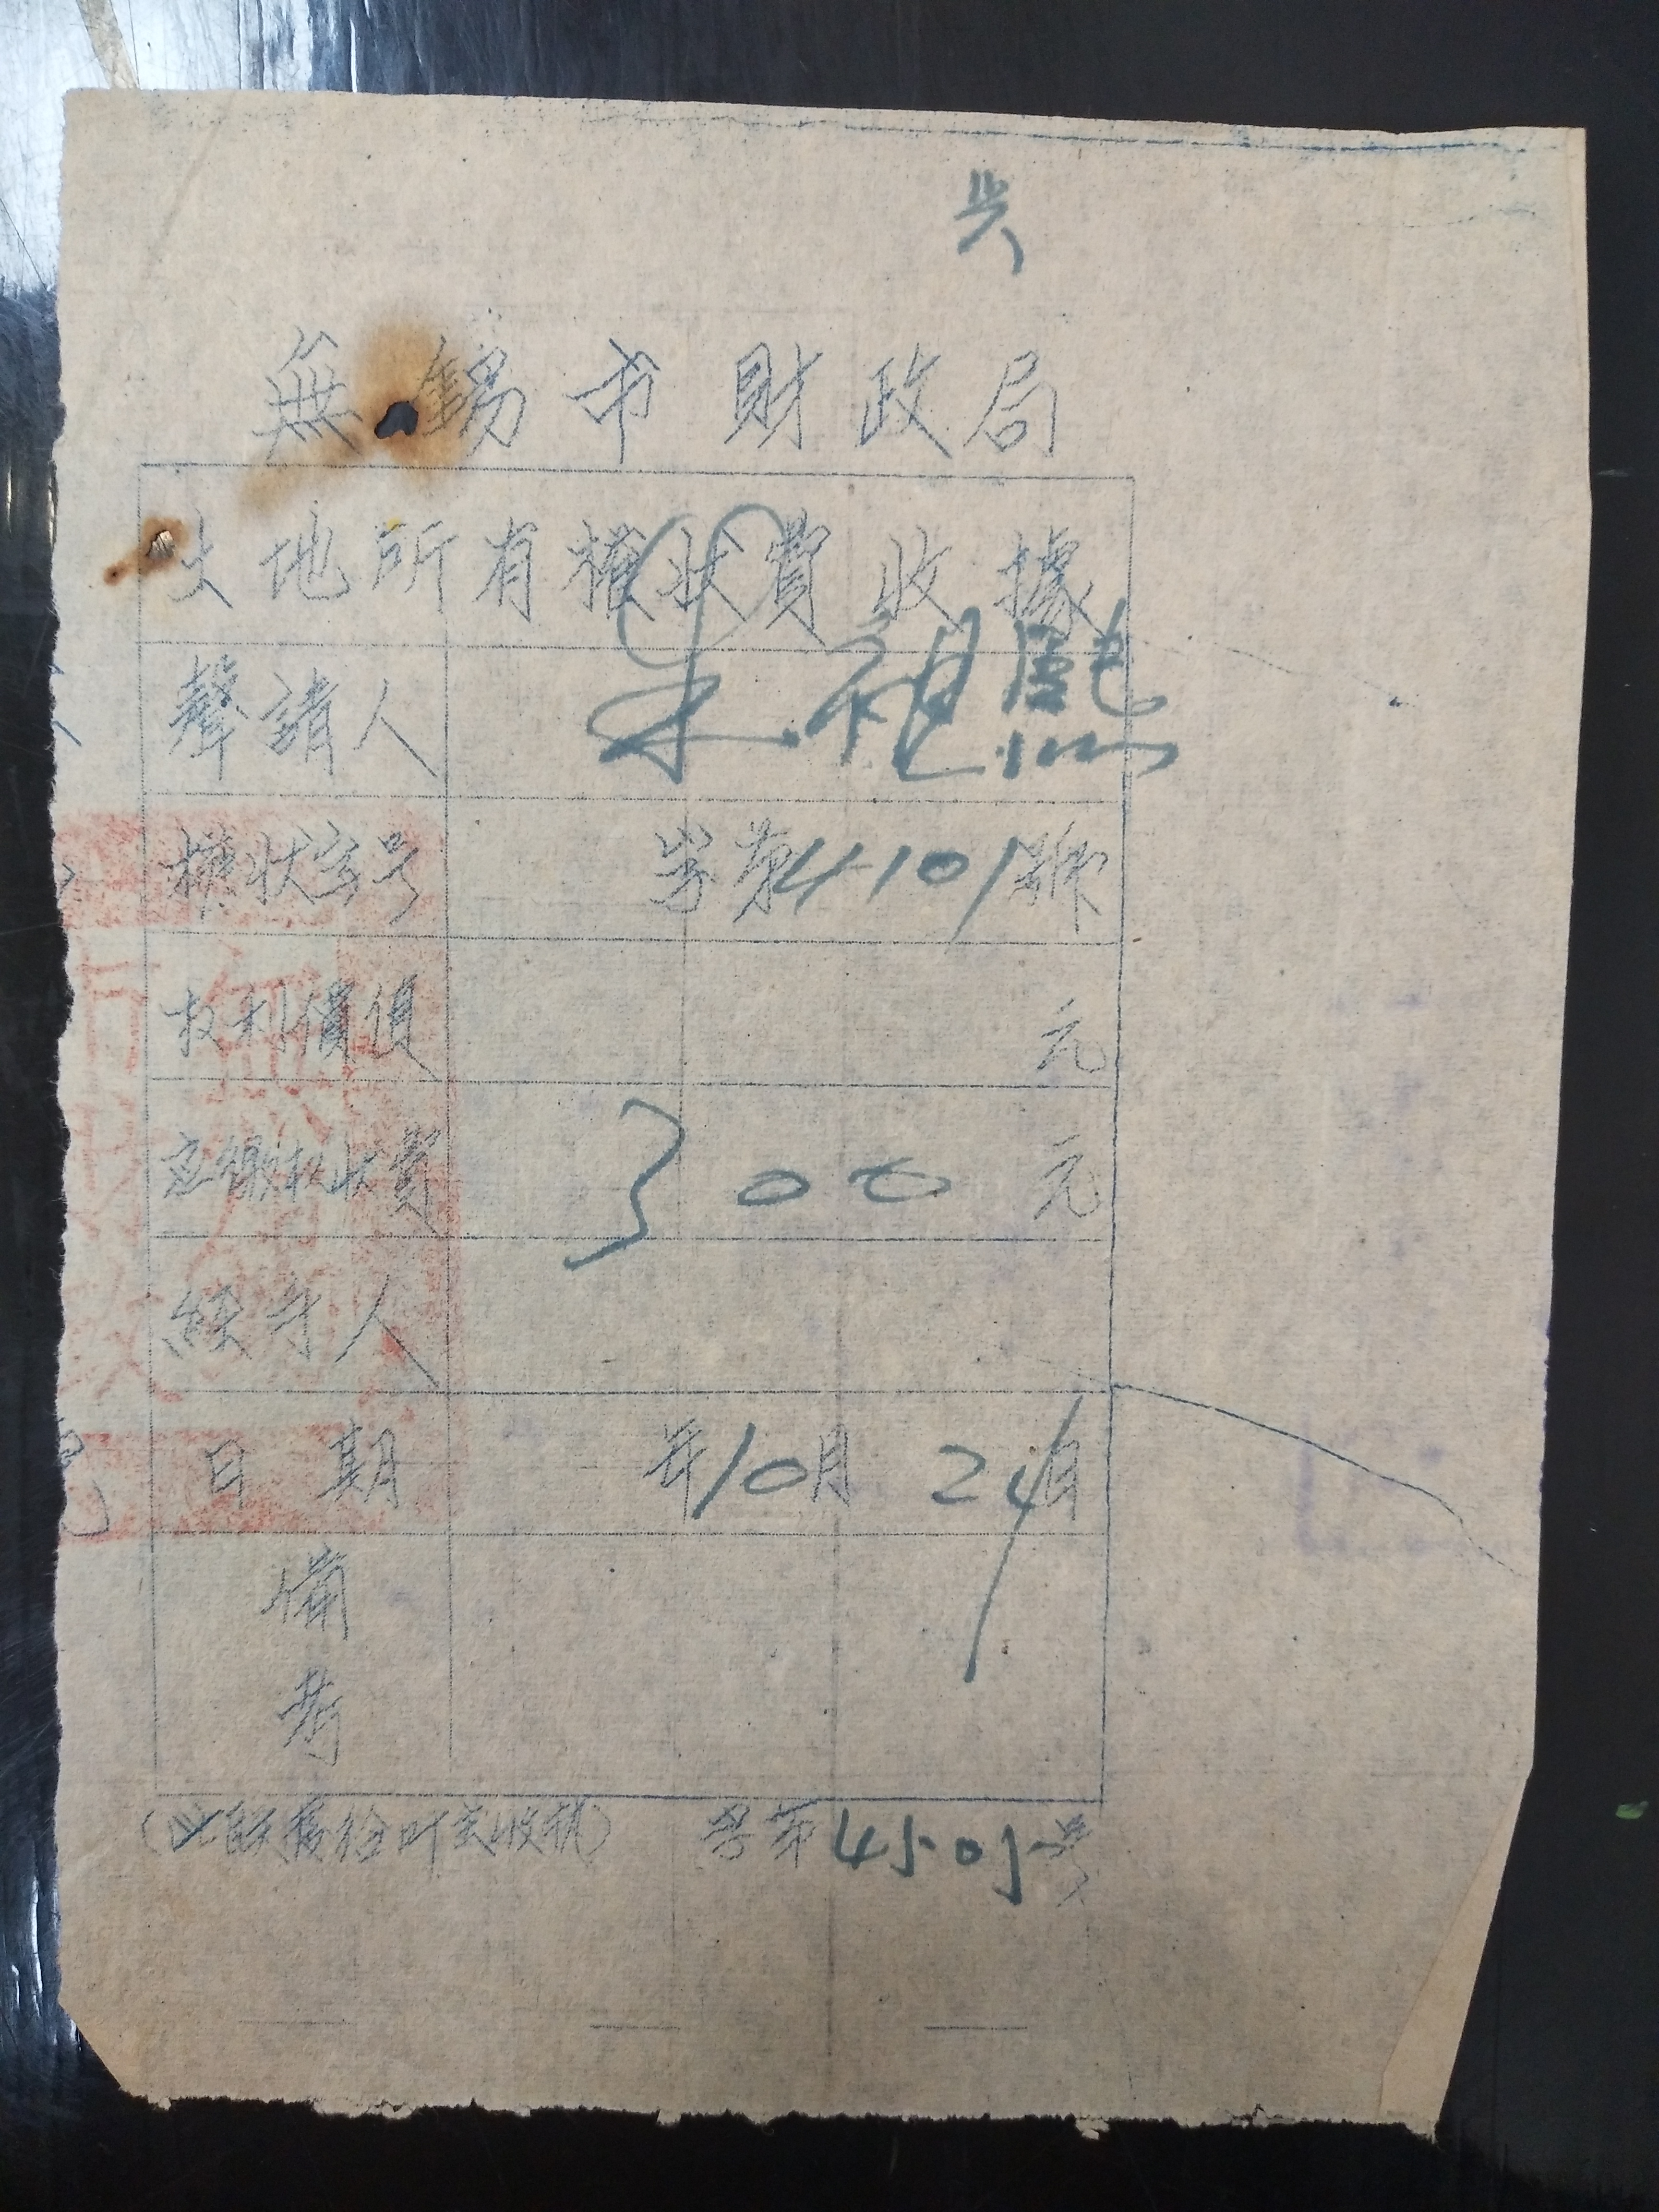 兴
無錫市財政局
土地所有權狀費收據
聲請人 朱祖熙
權狀字号 字第4101號
权利價值 元
应繳权狀費 300元
經手人
日期 年10月24日
備
考
字第4505号